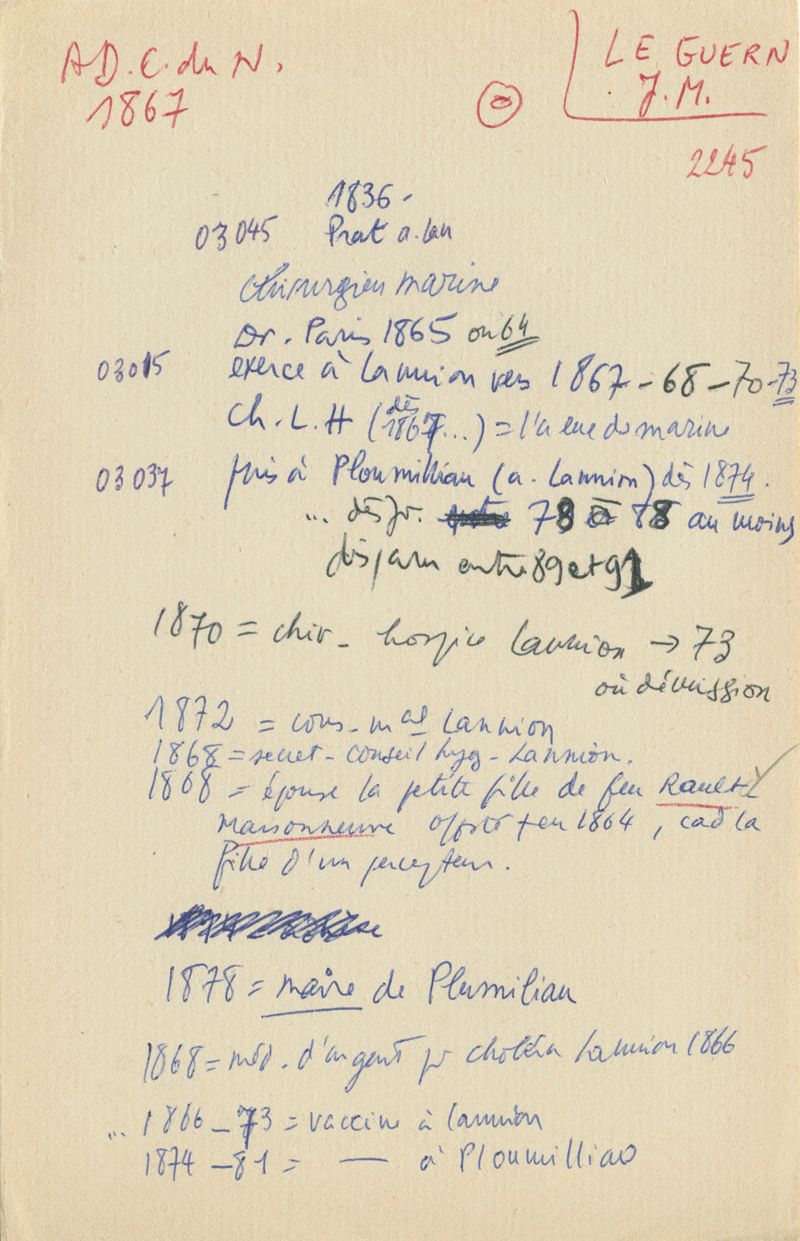 A.D.C. du N.
1867
LE GUERN
J.M.
2245
1836 -
03045 Prat a. Lan
chirurgien marine
Dr. Paris 1865 ou 64
03015 exerce à Lannion vers 1867 - 68 - 70 - 73
Ch. L. H (dès 1867...) = l'a eue ds marine
03037 puis à Ploumilliau (a. Lannion) dès 1874.
... dès 78 à 88 au moins
disparu entre 89 et 91
1870 = chir - hospice Lannion → 73
où démission
1872 = cons - mal Lannion
1868 = secret - conseil hyg - Lannion.
1868 = épouse la petite fille de feu Rault
Maisonneuve + en 1864, cad la
fille d'un percepteur.
1878 = maire de Plumiliau
1868 = méd. d'argent pr choléra Lannion 1866
... 1866 - 73 = vaccine à Lannion
1874 - 81 = — à Ploumilliao